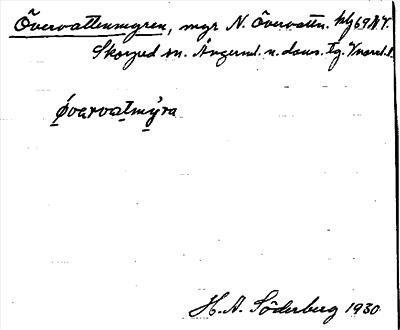 Övervattenmyren, myr N. Övervattn.
Skorped sn. Ångerml. n. doms.
övarvatmýra
H. A. Söderberg 1930